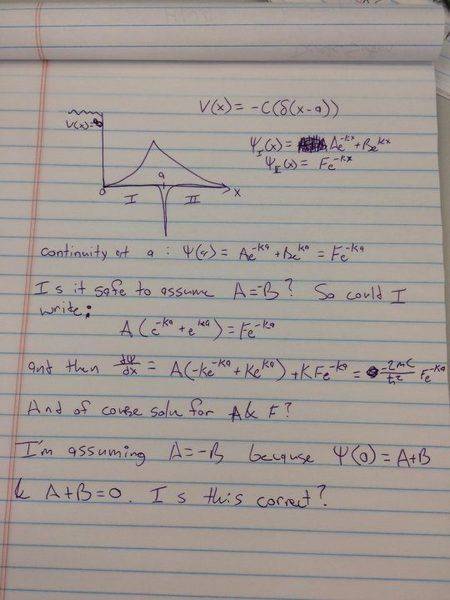 V(x) = -C(δ(x-a))
V(x)=∞
Ψ_I(x) = Ae^{-kx} + Be^{kx}
Ψ_II(x) = Fe^{-kx}
a
I II x
0
continuity at a : Ψ(a) = Ae^{-ka} + Be^{ka} = Fe^{-ka}
Is it safe to assume A=-B? So could I
write:
A(e^{-ka} + e^{ka}) = Fe^{-ka}
and then dΨ/dx = A(-ke^{-ka} + Ke^{ka}) + KFe^{-ka} = -2mC/ħ² Fe^{-ka}
And of course solve for A & F?
I'm assuming A=-B because Ψ(0) = A+B
& A+B=0. Is this correct?